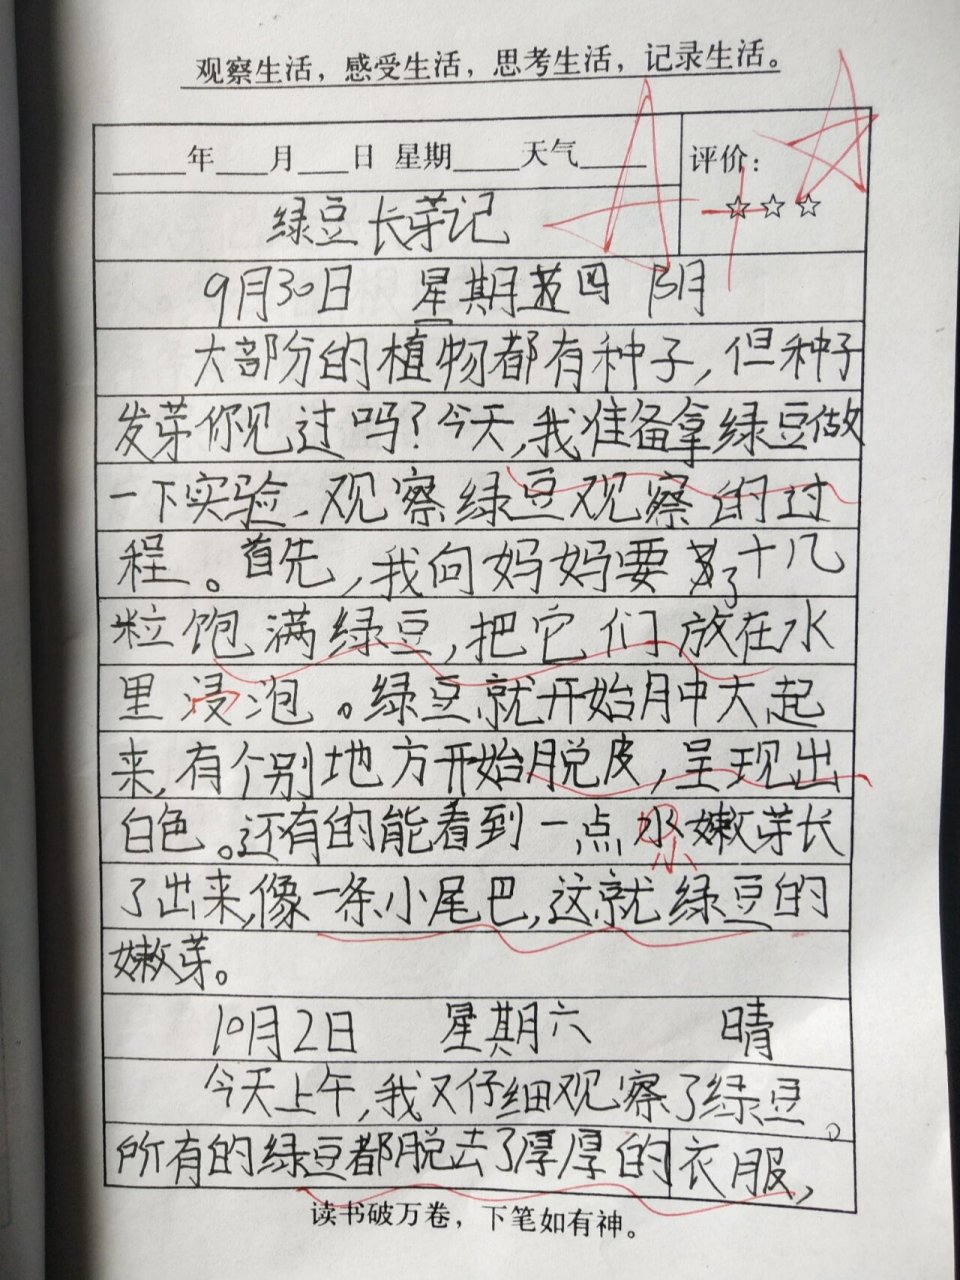 观察生活，感受生活，思考生活，记录生活。
____年___月___日 星期____天气____ 评价：
☆☆☆
A+
绿豆长芽记
9月30日 星期四 阴
大部分的植物都有种子，但种子
发芽你见过吗？今天，我准备拿绿豆做
一下实验、观察绿豆观察的过
程。首先，我向妈妈要了十几
粒饱满绿豆，把它们放在水
里浸泡。绿豆就开始月中大起
来，有个别地方开始脱皮，呈现出
白色。还有的能看到一点点嫩芽长
了出来，像一条小尾巴，这就绿豆的
嫩芽。
10月2日 星期六 晴
今天上午，我又仔细观察了绿豆。
所有的绿豆都脱去了厚厚的衣服，
读书破万卷，下笔如有神。